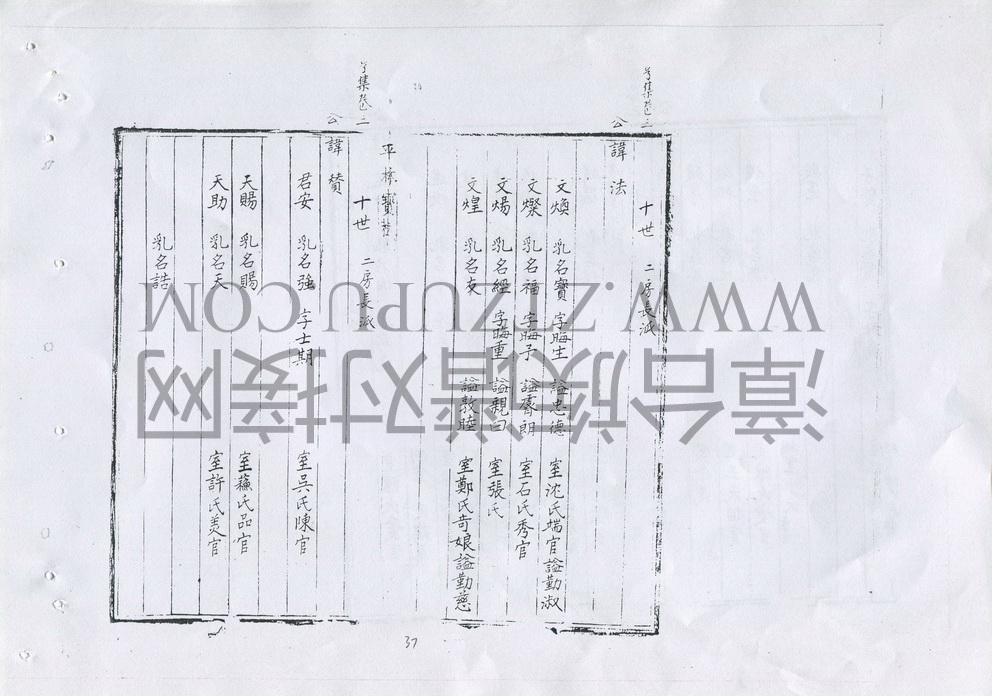 十世 二房長派
公諱法
文煥 乳名寶 字晦生 謚忠德 室沈氏端官謚勤淑
文燦 乳名福 字晦予 謚 朗 室石氏秀官
文煬 乳名經 字晦重 謚親曰 室張氏
文煌 乳名友 謚敦睦 室鄭氏奇娘謚勤慈
十世 二房長派
公諱贊
君安 乳名強 字士期 室吳氏陳官
天賜 乳名賜 室蘓氏品官
天助 乳名天 室許氏美官
乳名誥
37
WWW.ZTZUPU.COM
漳台族谱对接网